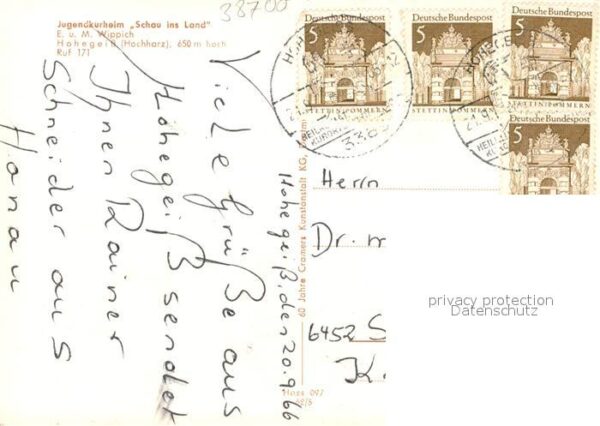 38700
Jugendkurheim „Schau ins Land"
E. u. M. Wippich
Hohegeiß (Hochharz), 650 m hoch
Ruf 171
Viele Grüße aus
Hohegeiß sendet
Ihnen Rainer
Schneider aus
Hanau
Hohegeiß, den 20.9.66
60 Jahre Cramers Kunstanstalt KG,
Haas 097
Deutsche Bundespost
5
STETTIN/POMMERN
Deutsche Bundespost
5
STETTIN/POMMERN
Deutsche Bundespost
5
STETTIN/POMMERN
Deutsche Bundespost
5
Herrn
Dr. m
6452 S
K.
privacy protection
Datenschutz